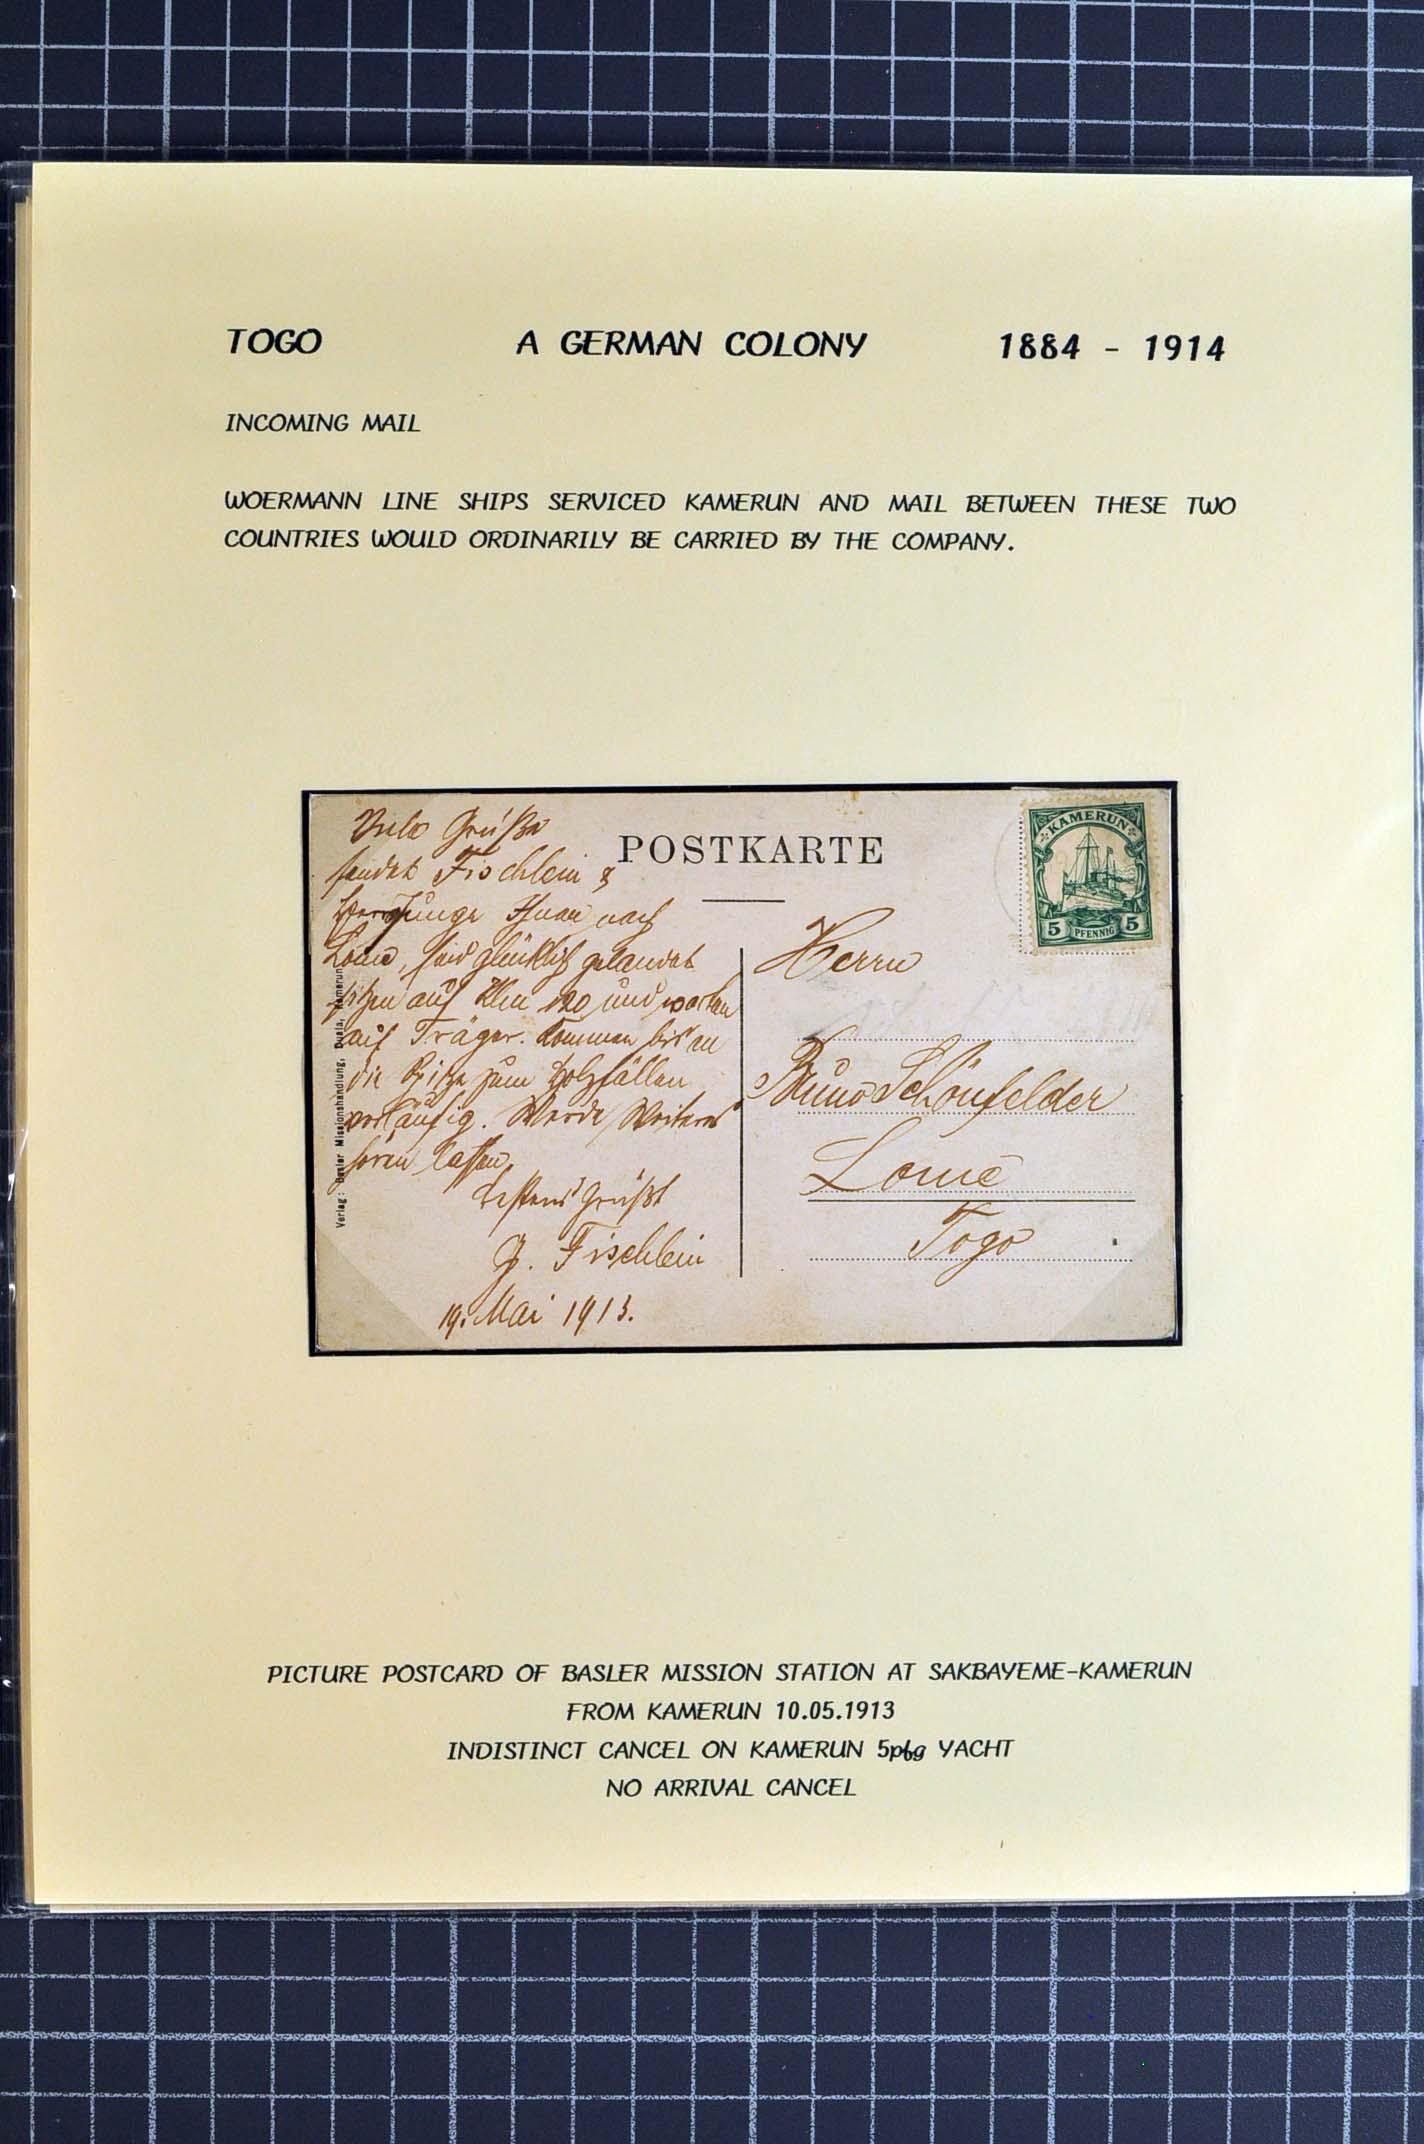 TOGO A GERMAN COLONY 1884 - 1914
INCOMING MAIL
WOERMANN LINE SHIPS SERVICED KAMERUN AND MAIL BETWEEN THESE TWO
COUNTRIES WOULD ORDINARILY BE CARRIED BY THE COMPANY.
POSTKARTE
KAMERUN
5 PFENNIG 5
Viele Grüße
sendet Fischlein &
Ihnen nach
Lome, sind glücklich gelandet
sitzen auf und warten
auf Träger. Kommen bis an
die Spitze zum Holzfällen
vorläufig. Werde Weiteres
hören lassen
bestens grüßt
J. Fischlein
19. Mai 1913.
Verlag: Basler Missionshandlung, Duala, Kamerun
Herrn
Bruno Schönfelder
Lome
Togo
PICTURE POSTCARD OF BASLER MISSION STATION AT SAKBAYEME-KAMERUN
FROM KAMERUN 10.05.1913
INDISTINCT CANCEL ON KAMERUN 5pfg YACHT
NO ARRIVAL CANCEL